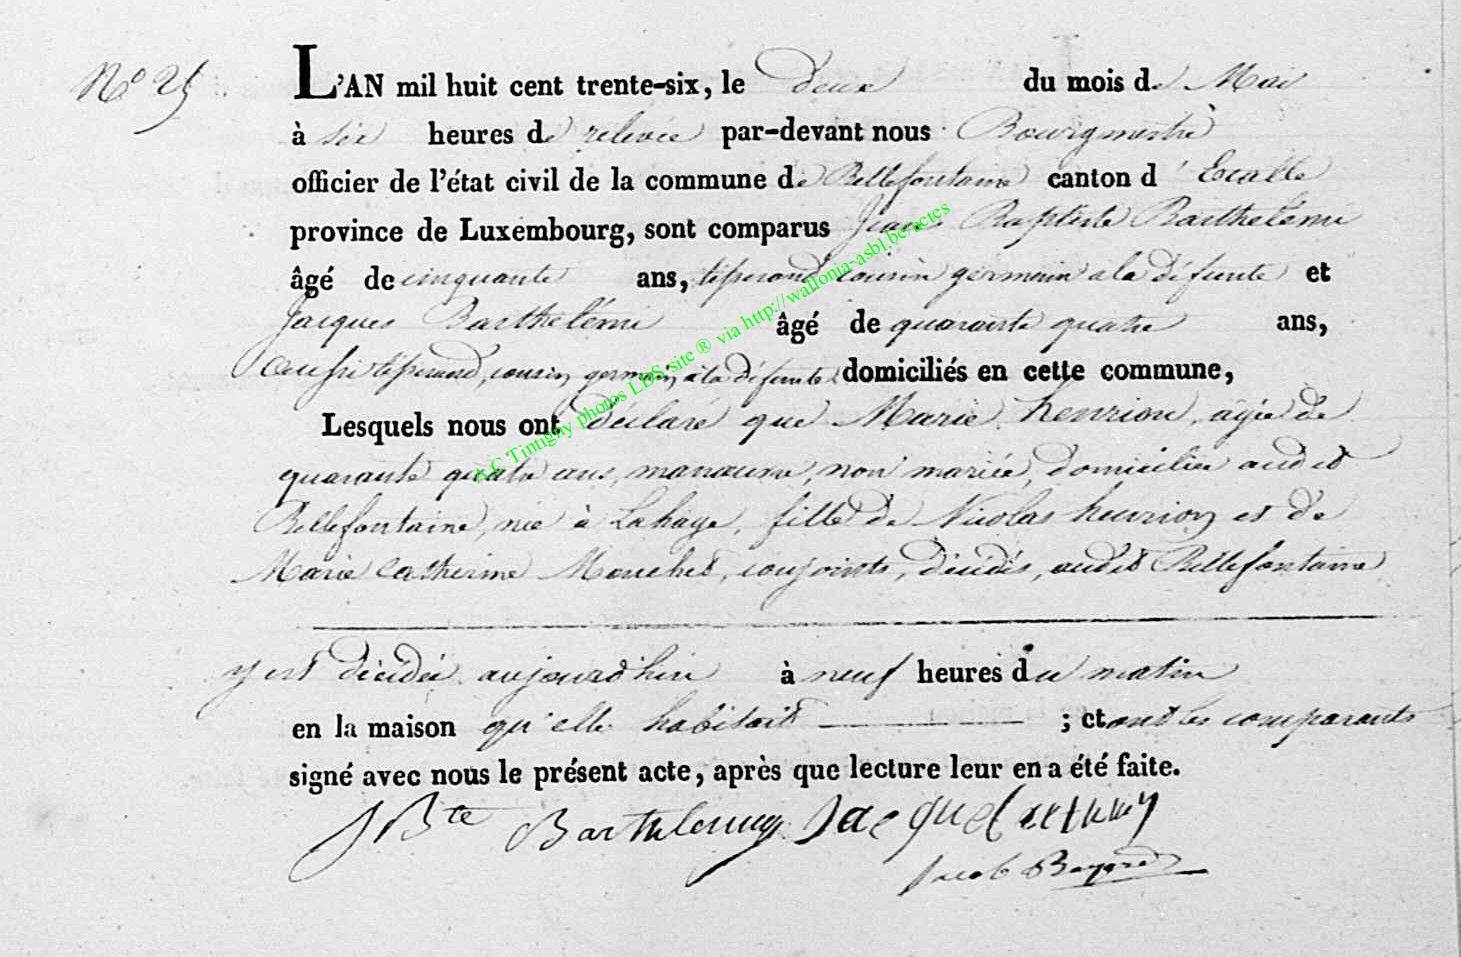 N° 25.
L'AN mil huit cent trente-six, le deux du mois de Mai
à six heures de relevée par-devant nous Bourgmestre
officier de l'état civil de la commune de Bellefontaine canton d' Etalle
province de Luxembourg, sont comparus Jean Baptiste Barthelémi
âgé de cinquante ans, tisserand cousin germain a la défunte et
Jacques Barthelémi âgé de quarante quatre ans,
aussi tisserand, cousin germain, à la défunte domiciliés en cette commune,
Lesquels nous ont déclaré que Marie henrion, âgée de
quarante quatre ans, manœuvre, non mariée, domiciliée audit
Bellefontaine, née à Lahage, fille de Nicolas henrion et de
Marie Catherine Mouchet, conjoints, décédés, audit Bellefontaine
y est décédée aujourd'hui à neuf heures du matin
en la maison qu'elle habitait ; et ont les comparants
signé avec nous le présent acte, après que lecture leur en a été faite.
JBte Barthelemy Jacque
Jacob
A.C Tintigny photos LDS site ® via http://wallonia-asbl.be/actes